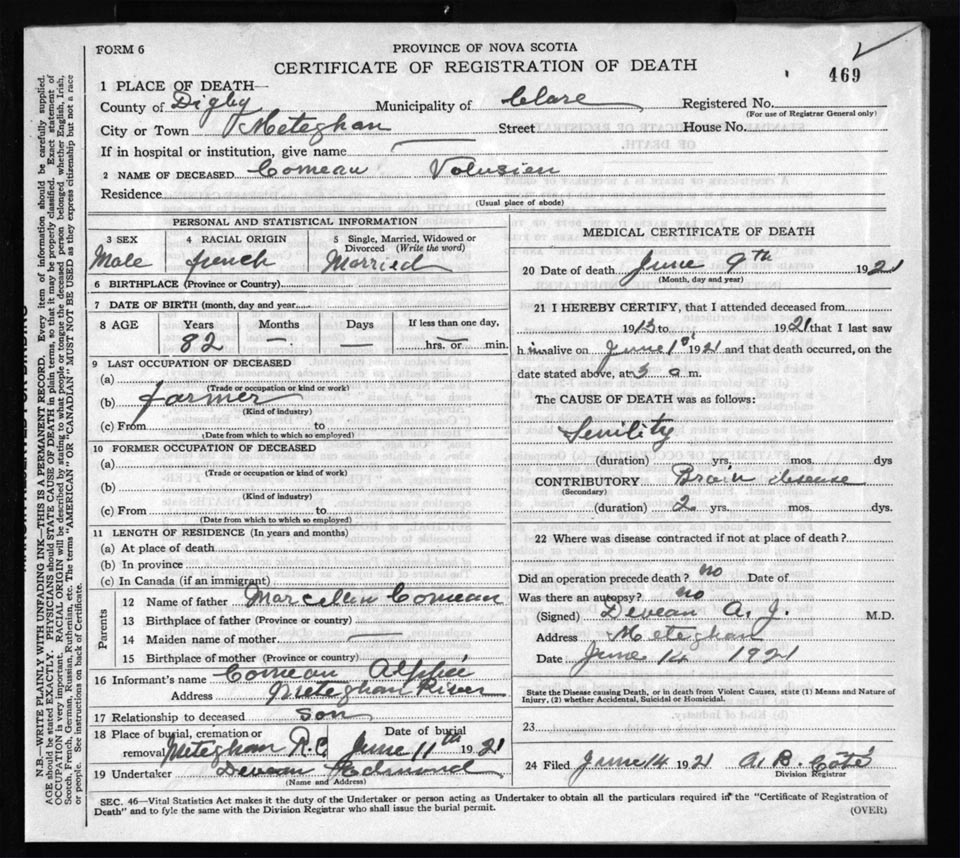 FORM 6
PROVINCE OF NOVA SCOTIA
CERTIFICATE OF REGISTRATION OF DEATH
469
1 PLACE OF DEATH—
County of Digby Municipality of Clare Registered No.
(For use of Registrar General only)
City or Town Meteghan Street House No.
If in hospital or institution, give name
2 NAME OF DECEASED Comeau Volusien
Residence
(Usual place of abode)
PERSONAL AND STATISTICAL INFORMATION
3 SEX 4 RACIAL ORIGIN 5 Single, Married, Widowed or Divorced (Write the word)
Male french Married
6 BIRTHPLACE (Province or Country)
7 DATE OF BIRTH (month, day and year
8 AGE Years Months Days If less than one day,
82 — — hrs. or min.
9 LAST OCCUPATION OF DECEASED
(a)
(Trade or occupation or kind or work)
(b) farmer
(Kind of industry)
(c) From to
(Date from which to which so employed)
10 FORMER OCCUPATION OF DECEASED
(a)
(Trade or occupation or kind of work)
(b)
(Kind of industry)
(c) From to
(Date from which to which so employed)
11 LENGTH OF RESIDENCE (In years and months)
(a) At place of death
(b) In province
(c) In Canada (if an immigrant)
Parents
12 Name of father Marcellin Comeau
13 Birthplace of father (Province or country)
14 Maiden name of mother
15 Birthplace of mother (Province or country)
16 Informant's name Comeau Alphée
Address Meteghan River
17 Relationship to deceased son
18 Place of burial, cremation or removal Meteghan R.C. Date of burial June 11th 1921
19 Undertaker Deveau Edmund
(Name and Address)
MEDICAL CERTIFICATE OF DEATH
20 Date of death June 9th 1921
(Month, day and year)
21 I HEREBY CERTIFY, that I attended deceased from
1913 to 1921 that I last saw
him alive on June 1st 1921 and that death occurred, on the
date stated above, at 5 a m.
The CAUSE OF DEATH was as follows:
Senility
(duration) yrs. mos. dys
CONTRIBUTORY Brain disease
(Secondary)
(duration) 2 yrs. mos. dys.
22 Where was disease contracted if not at place of death?
Did an operation precede death? no Date of
Was there an autopsy? no
(Signed) Deveau A. J. M.D.
Address Meteghan
Date June 14 1921
State the Disease causing Death, or in death from Violent Causes, state (1) Means and Nature of Injury, (2) whether Accidental, Suicidal or Homicidal.
23
24 Filed June 14 1921 A. B. Coté
Division Registrar
SEC. 46—Vital Statistics Act makes it the duty of the Undertaker or person acting as Undertaker to obtain all the particulars required in the "Certificate of Registration of
Death" and to fyle the same with the Division Registrar who shall issue the burial permit.
(OVER)
N.B.—WRITE PLAINLY WITH UNFADING INK—THIS IS A PERMANENT RECORD. Every item of information should be carefully supplied.
AGE should be stated EXACTLY. PHYSICIANS should STATE CAUSE OF DEATH in plain terms, so that it may be properly classified. Exact statement of
OCCUPATION is very important. RACIAL ORIGIN will be described by stating to what people or tongue the deceased person belonged whether English, Irish,
Scotch, French, German, Russian, Ruthenian, etc. The terms "AMERICAN" OR "CANADIAN" MUST NOT BE USED as they express citizenship but not a race
or people. See instructions on back of Certificate.